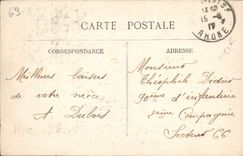 69
CARTE POSTALE
15 - 6
RHÔNE
CORRESPONDANCE
ADRESSE
Meilleurs baisers
de votre nièce
A. Dubois
Monsieur
Théophile
90ème d'infanterie
Compagnie
Secteur 66